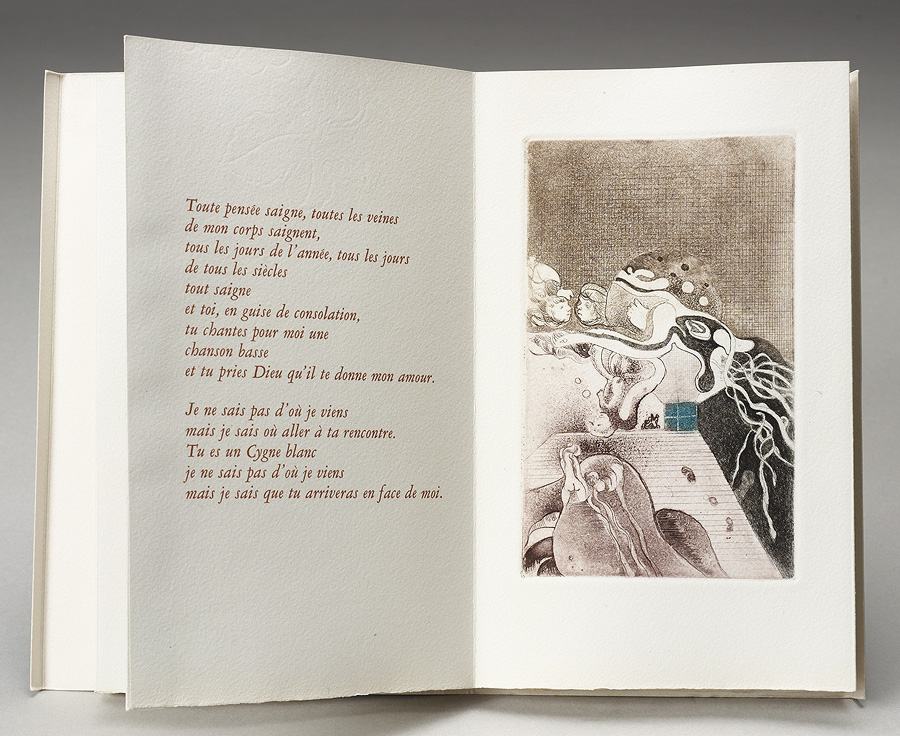 Toute pensée saigne, toutes les veines
de mon corps saignent,
tous les jours de l'année, tous les jours
de tous les siècles
tout saigne
et toi, en guise de consolation,
tu chantes pour moi une
chanson basse
et tu pries Dieu qu'il te donne mon amour.
Je ne sais pas d'où je viens
mais je sais où aller à ta rencontre.
Tu es un Cygne blanc
je ne sais pas d'où je viens
mais je sais que tu arriveras en face de moi.